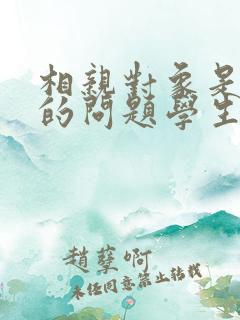 相親對象是
的問題學生
趙孽啊
未经同意禁止转载